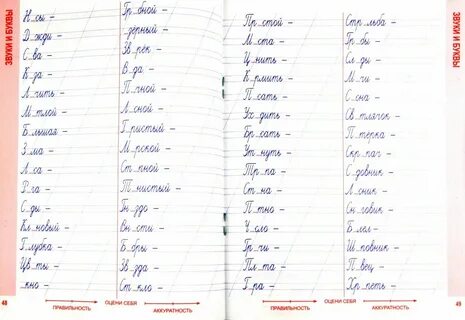 ЗВУКИ И БУКВЫ
Н_сы –
Д_жди –
С_ва –
К_за –
Л_чить –
М_тлой –
Б_льшая –
З_ма –
Л_са –
Р_га –
С_ды –
Кл_новый –
Г_лубка –
Цв_ты –
_кно –
Гр_бной –
_зёрный –
Зв_рёк –
В_да –
П_чной –
Л_сной –
Г_ристый –
М_рской –
Ст_пной –
Т_нистый –
Гн_здо –
Вн_сти –
Б_бры –
Зв_зда –
Ст_кло –
48
ПРАВИЛЬНОСТЬ
ОЦЕНИ СЕБЯ
АККУРАТНОСТЬ
Пр_стой –
М_ста –
Ц_нить –
К_рмить –
П_сать –
Ух_дить –
Бр_сать –
Ут_нуть –
Тр_па –
Ст_на –
П_тно –
Ч_сло –
Гр_чи –
Пл_та –
Г_ра –
Стр_льба –
Гр_бы –
Сл_ды –
М_чи –
С_сна –
Св_тлячок –
П_тёрка –
Скр_пач –
С_довник –
Л_сник –
Сн_говик –
Б_лел –
Ш_повник –
П_вец –
Хр_петь –
ЗВУКИ И БУКВЫ
ПРАВИЛЬНОСТЬ
ОЦЕНИ СЕБЯ
АККУРАТНОСТЬ
49